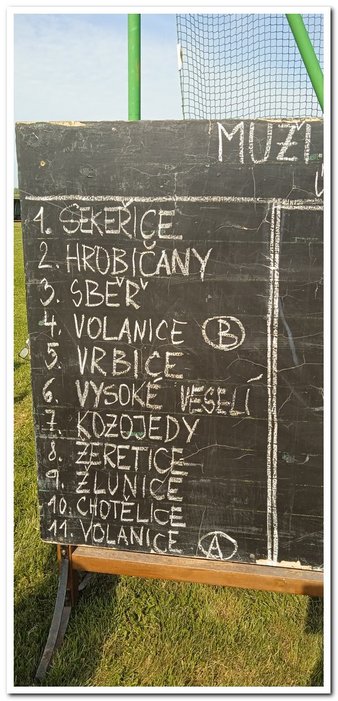 MUŽI
1. SEKEŘICE
2. HROBIČANY
3. SBĚŘ
4. VOLANICE B
5. VRBICE
6. VYSOKÉ VESELÍ
7. KOZOJEDY
8. ŽERETICE
9. ŽLUNICE
10. CHOTĚLICE
11. VOLANICE A